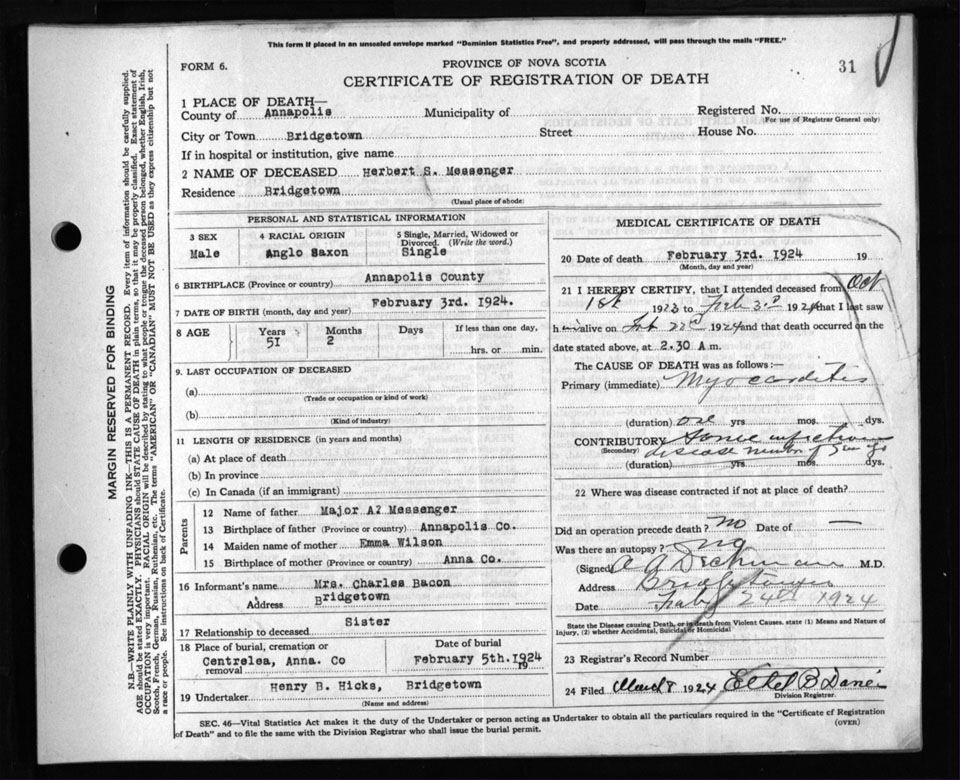 This form if placed in an unsealed envelope marked "Dominion Statistics Free", and properly addressed, will pass through the mails "FREE."
FORM 6.
PROVINCE OF NOVA SCOTIA
CERTIFICATE OF REGISTRATION OF DEATH
31
1 PLACE OF DEATH—
County of Annapolis Municipality of Registered No.
(For use of Registrar General only)
City or Town Bridgetown Street House No.
If in hospital or institution, give name
2 NAME OF DECEASED Herbert S. Messenger
Residence Bridgetown
(Usual place of abode)
PERSONAL AND STATISTICAL INFORMATION
3 SEX 4 RACIAL ORIGIN 5 Single, Married, Widowed or Divorced. (Write the word.)
Male Anglo Saxon Single
6 BIRTHPLACE (Province or country) Annapolis County
7 DATE OF BIRTH (month, day and year) February 3rd. 1924.
8 AGE Years Months Days If less than one day,
51 2 hrs. or min.
9. LAST OCCUPATION OF DECEASED
(a)
(Trade or occupation or kind of work)
(b)
(Kind of industry)
11 LENGTH OF RESIDENCE (in years and months)
(a) At place of death
(b) In province
(c) In Canada (if an immigrant)
Parents
12 Name of father Major A? Messenger
13 Birthplace of father (Province or country) Annapolis Co.
14 Maiden name of mother Emma Wilson
15 Birthplace of mother (Province or country) Anna Co.
16 Informant's name Mrs. Charles Bacon
Address Bridgetown
17 Relationship to deceased Sister
18 Place of burial, cremation or removal Centrelea, Anna. Co
Date of burial
February 5th. 1924
19
19 Undertaker Henry B. Hicks, Bridgetown
(Name and address)
MEDICAL CERTIFICATE OF DEATH
20 Date of death February 3rd. 1924 19
(Month, day and year)
21 I HEREBY CERTIFY, that I attended deceased from Oct
1st 1923 to Feb 3rd 1924 that I last saw
him alive on Feb 22nd 1924 and that death occurred on the
date stated above, at 2.30 A.m.
The CAUSE OF DEATH was as follows:—
Primary (immediate) Myocarditis
(duration) one yrs mos. dys.
CONTRIBUTORY Some infectious
(Secondary) disease number of yrs ago
(duration) yrs mos. dys.
22 Where was disease contracted if not at place of death?
Did an operation precede death? no Date of —
Was there an autopsy? no
(Signed) M.D.
Address Bridgetown
Date Feby 24th 1924
State the Disease causing Death, or in death from Violent Causes, state (1) Means and Nature of
Injury, (2) whether Accidental, Suicidal or Homicidal
23 Registrar's Record Number
24 Filed March 8 1924 Ethel B
Division Registrar.
SEC. 46—Vital Statistics Act makes it the duty of the Undertaker or person acting as Undertaker to obtain all the particulars required in the "Certificate of Registration
of Death" and to file the same with the Division Registrar who shall issue the burial permit.
(OVER)
MARGIN RESERVED FOR BINDING
N.B.—WRITE PLAINLY WITH UNFADING INK—THIS IS A PERMANENT RECORD. Every item of information should be carefully supplied.
AGE should be stated EXACTLY. PHYSICIANS should STATE CAUSE OF DEATH in plain terms, so that it may be properly classified. Exact statement of
OCCUPATION is very important. RACIAL ORIGIN will be described by stating to what people or tongue the deceased person belonged, whether English, Irish,
Scotch, French, German, Russian, Ruthenian, etc. The terms "AMERICAN" OR "CANADIAN" MUST NOT BE USED as they express citizenship but not
a race or people. See instructions on back of Certificate.